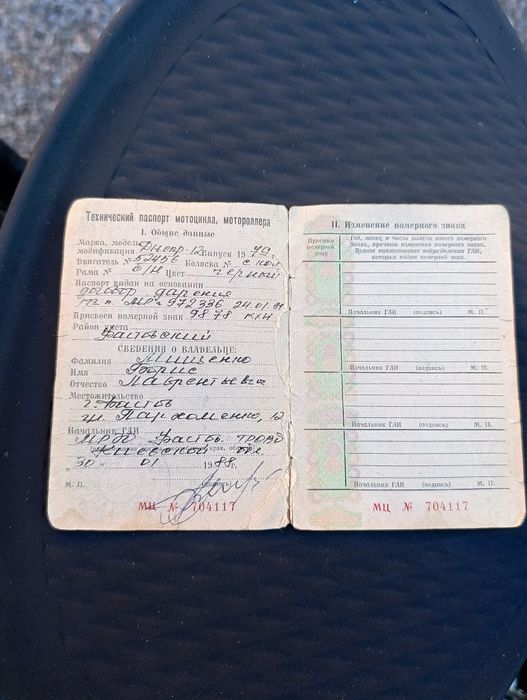 Технический паспорт мотоцикла, мотороллера
I. Общие данные
Марка, модель, Днепр-12
модификация Выпуск 1979 г.
Двигатель № 52456 Коляска № с кол
Рама № б/н Цвет черный
Паспорт выдан на основании
договор дарения
24.01.88
Присвоен номерной знак 9878 КХН
Район учета
Фастовский
СВЕДЕНИЯ О ВЛАДЕЛЬЦЕ:
Фамилия Мищенко
Имя Борис
Отчество Лаврентьевич
Местожительство
г. Фастов
ул. Пархоменко, 12
Начальник ГАИ
МРЭО Фастов. ГРОВД
Киевской обл
„30“ 01 1988г.
М. П. (подпись)
МЦ № 704117
II. Изменение номерного знака
Присвоен номерной знак
Год, месяц и число выдачи нового номерного
знака, причина изменения номерного знака.
Полное наименование подразделения ГАИ,
которая выдан номерной знак.
Начальник ГАИ (подпись) М. П.
Начальник ГАИ (подпись) М. П.
Начальник ГАИ (подпись) М. П.
Начальник ГАИ (подпись) М. П.
МЦ № 704117